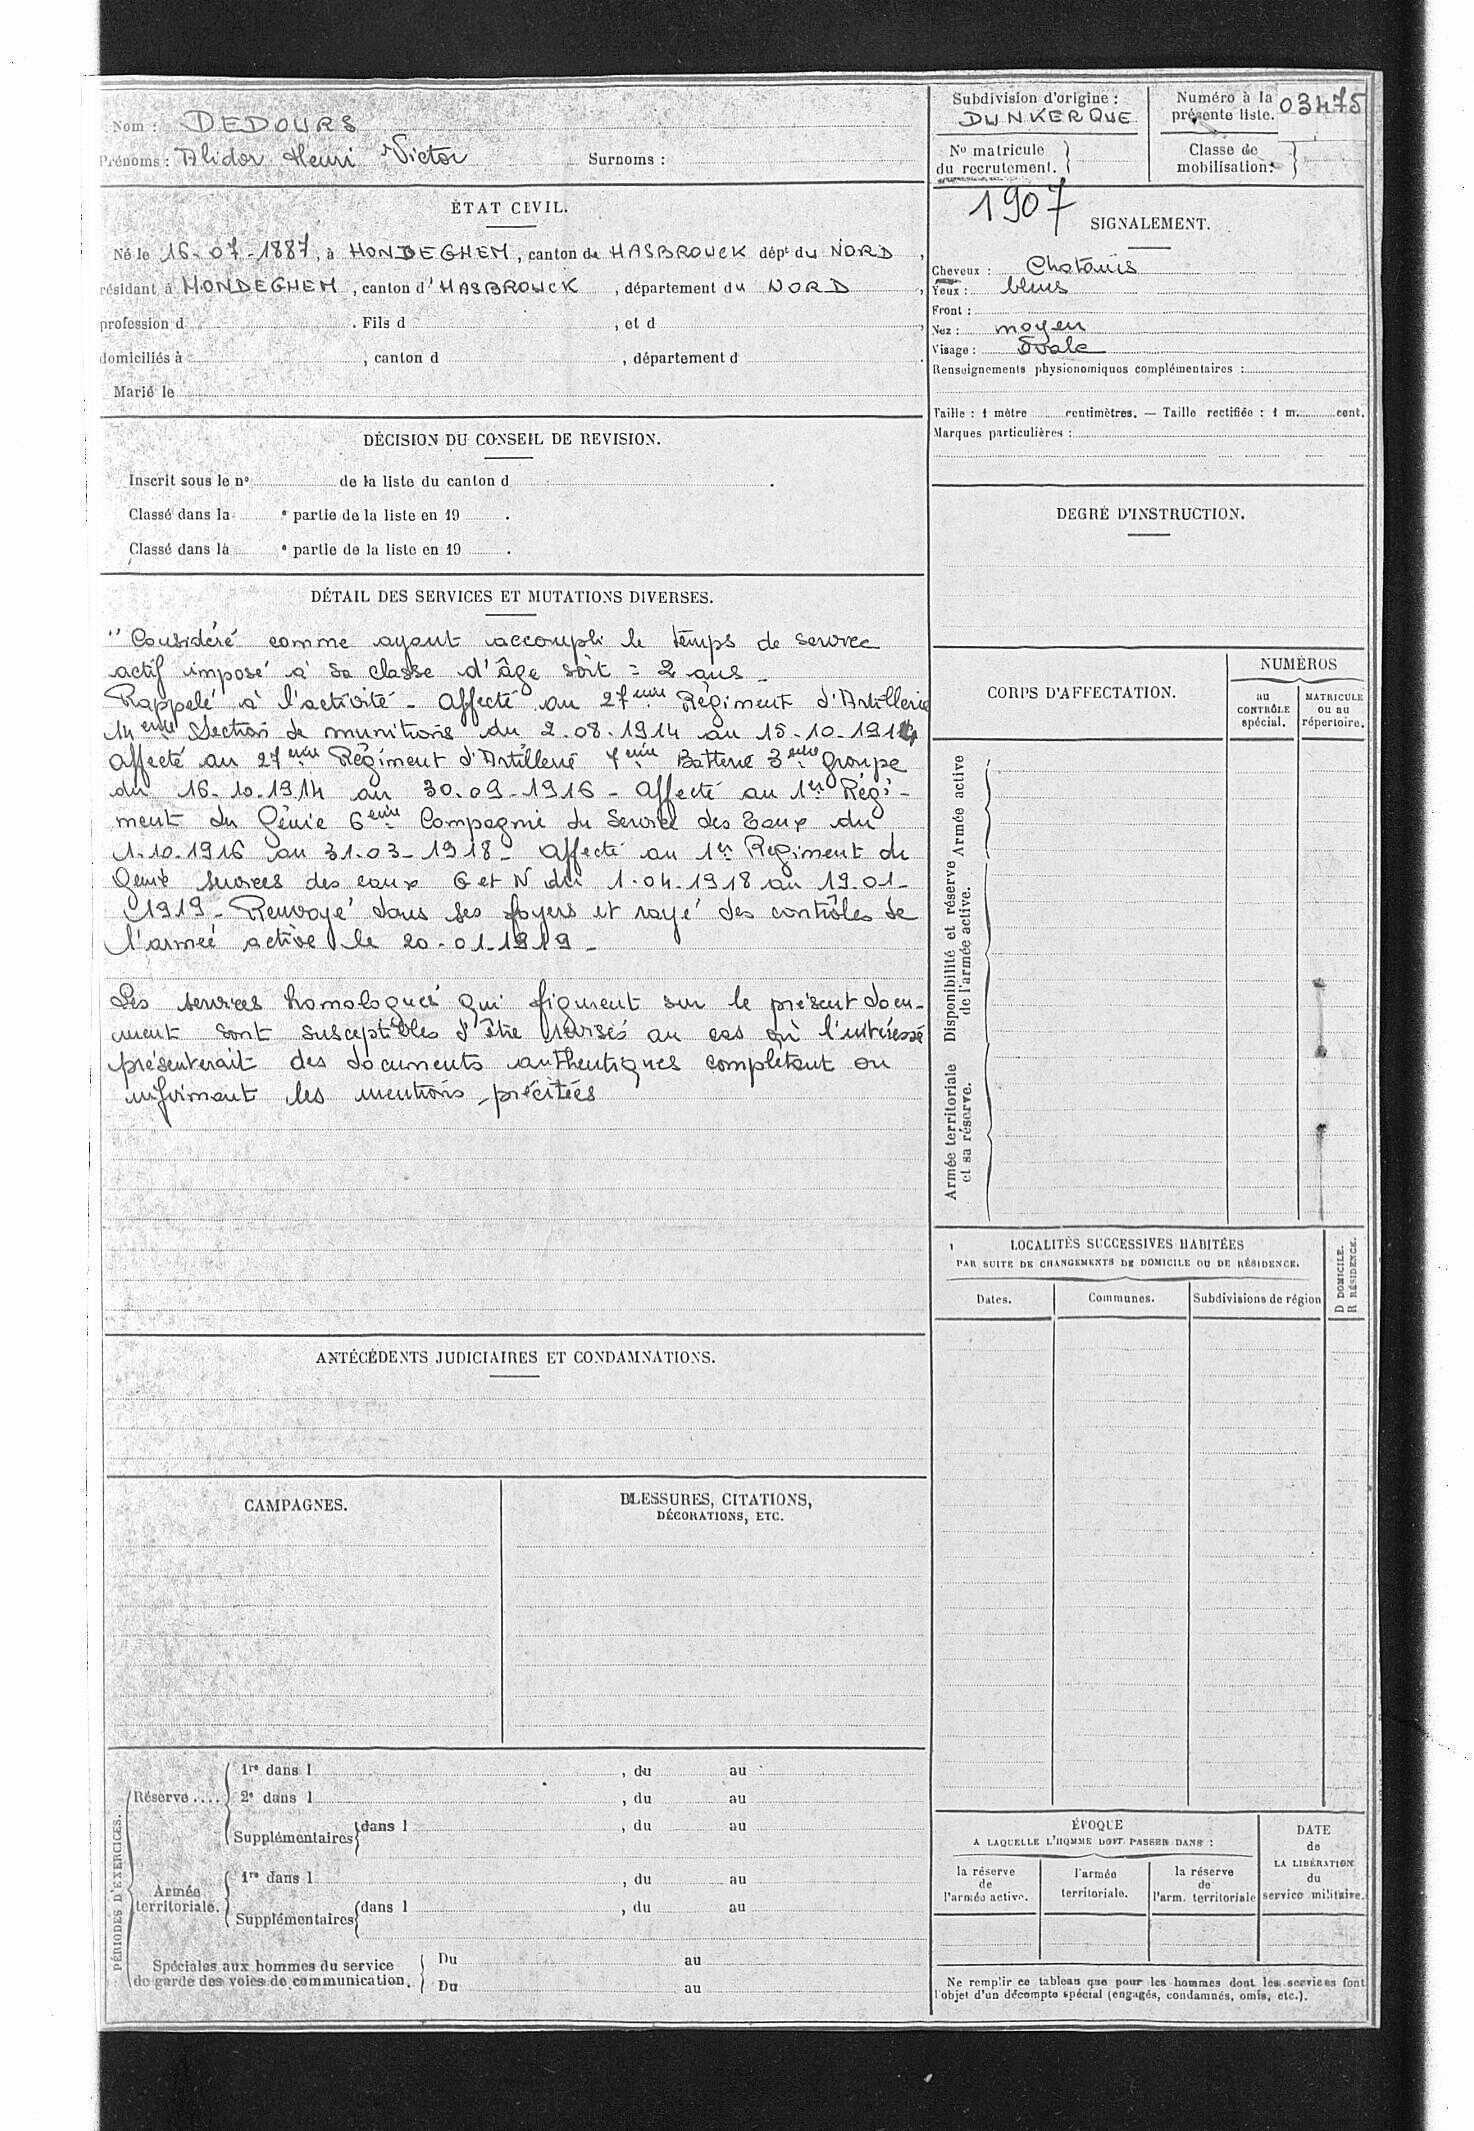 Nom : DEDOURS
Prénoms : Alidor Henri Victor Surnoms :
Subdivision d'origine : DUNKERQUE
Numéro à la présente liste. 03475
No matricule du recrutement.
Classe de mobilisation.
1907
ÉTAT CIVIL.
Né le 16-07-1887, à HONDEGHEM, canton de HASBROUCK dépt du NORD,
résidant à HONDEGHEM, canton d'HASBROUCK, département du NORD,
profession d . Fils d , et d ,
domiciliés à , canton d , département d .
Marié le
SIGNALEMENT.
Cheveux : Chatains
Yeux : bleus
Front :
Nez : moyen
Visage : Ovale
Renseignements physionomiques complémentaires :
Taille : 1 mètre centimètres. — Taille rectifiée : 1 m. cent.
Marques particulières :
DÉCISION DU CONSEIL DE REVISION.
Inscrit sous le no de la liste du canton d .
Classé dans la e partie de la liste en 19 .
Classé dans la e partie de la liste en 19 .
DEGRÉ D'INSTRUCTION.
DÉTAIL DES SERVICES ET MUTATIONS DIVERSES.
"Considéré comme ayant accompli le temps de service
actif imposé à sa classe d'âge soit = 2 ans -
Rappelé à l'activité - Affecté au 27eme Régiment d'Artillerie
14eme Section de munitions du 2.08.1914 au 15-10-1914
affecté au 27eme Régiment d'Artillerie 7eme Batterie 3eme groupe
du 16.10.1914 au 30.09-1916 - affecté au 1er Régi-
ment du Génie 6eme Compagnie du Service des Eaux du
1.10.1916 au 31.03-1918 - affecté au 1er Regiment de
Génie services des eaux G et N du 1.04.1918 au 19.01-
1919 - Renvoyé dans ses foyers et rayé des contrôles de
l'armée active le 20-01-1919 -
Les services homologués qui figurent sur le présent docu-
ment sont susceptibles d'être revisés au cas où l'intéressé
présenterait des documents authentiques complétant ou
infirmant les mentions précitées
CORPS D'AFFECTATION.
NUMÉROS
au CONTRÔLE spécial.
MATRICULE ou au répertoire.
Armée active
Disponibilité et réserve de l'armée active.
Armée territoriale et sa réserve.
LOCALITÉS SUCCESSIVES HABITÉES
PAR SUITE DE CHANGEMENTS DE DOMICILE OU DE RÉSIDENCE.
Dates. Communes. Subdivisions de région
D DOMICILE.
R RÉSIDENCE.
ANTÉCÉDENTS JUDICIAIRES ET CONDAMNATIONS.
CAMPAGNES.
BLESSURES, CITATIONS,
DÉCORATIONS, ETC.
PÉRIODES D'EXERCICES.
Réserve ....
1re dans l , du au
2e dans l , du au
Supplémentaires dans l , du au
Armée territoriale.
1re dans l , du au
Supplémentaires dans l , du au
Spéciales aux hommes du service
de garde des voies de communication.
Du au
Du au
ÉPOQUE
A LAQUELLE L'HOMME DOIT PASSER DANS :
la réserve de l'armée active.
l'armée territoriale.
la réserve de l'arm. territoriale
DATE de LA LIBÉRATION du service militaire.
Ne remplir ce tableau que pour les hommes dont les services font
l'objet d'un décompte spécial (engagés, condamnés, omis, etc.).